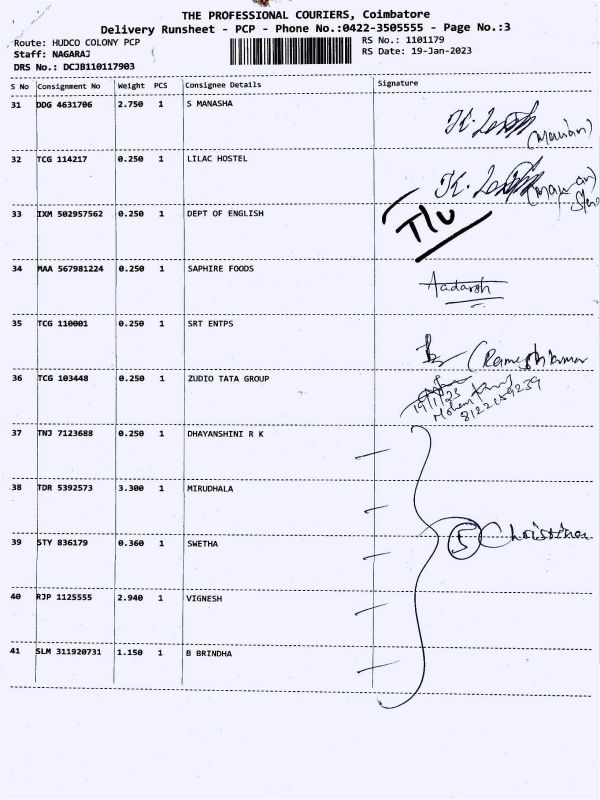 THE PROFESSIONAL COURIERS, Coimbatore
Delivery Runsheet - PCP - Phone No.:0422-3505555 - Page No.:3
Route: HUDCO COLONY PCP
Staff: NAGARAJ
DRS No.: DCJB110117903
RS No.: 1101179
RS Date: 19-Jan-2023
S No Consignment No Weight PCS Consignee Details Signature
31 DDG 4631706 2.750 1 S MANASHA
32 TCG 114217 0.250 1 LILAC HOSTEL
33 IXM 502957562 0.250 1 DEPT OF ENGLISH
34 MAA 567981224 0.250 1 SAPHIRE FOODS Aadarsh
35 TCG 110001 0.250 1 SRT ENTPS
36 TCG 103448 0.250 1 ZUDIO TATA GROUP
19/1/23
37 TNJ 7123688 0.250 1 DHAYANSHINI R K
38 TDR 5392573 3.300 1 MIRUDHALA
39 STY 836179 0.360 1 SWETHA 5 Christina
40 RJP 1125555 2.940 1 VIGNESH
41 SLM 311920731 1.150 1 B BRINDHA